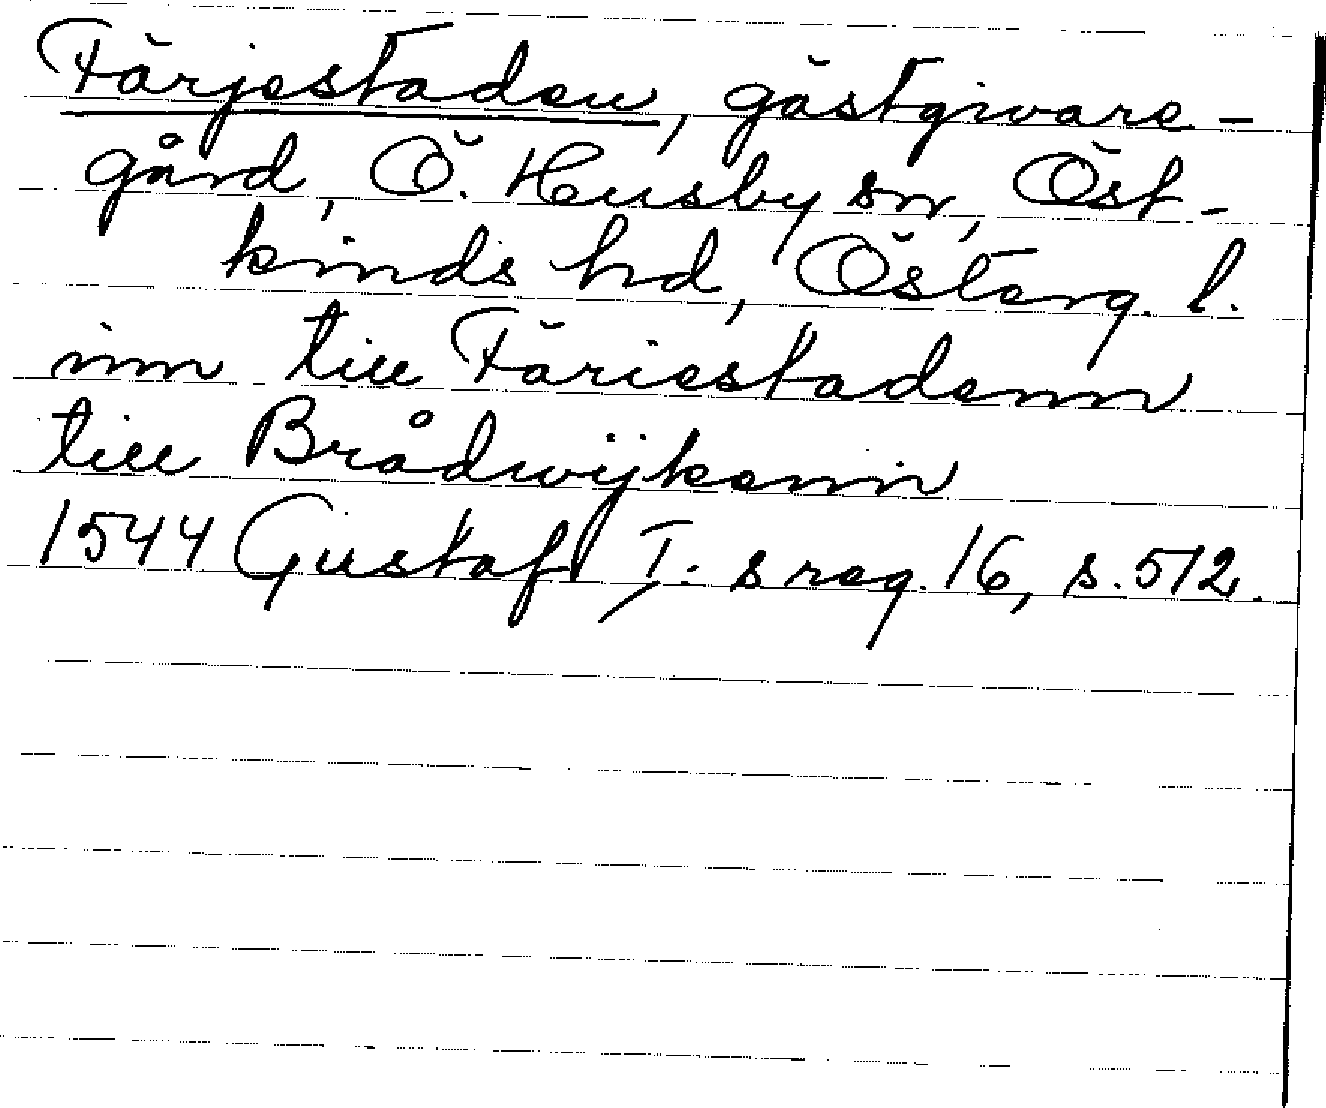 Färjestaden, gästgivare-
gård, Ö. Husby sn, Öst-
kinds hd, Österg. l.
inn till Färiestadenn
till Brådwijkenn
1544 Gustaf I:s reg. 16, s. 512.